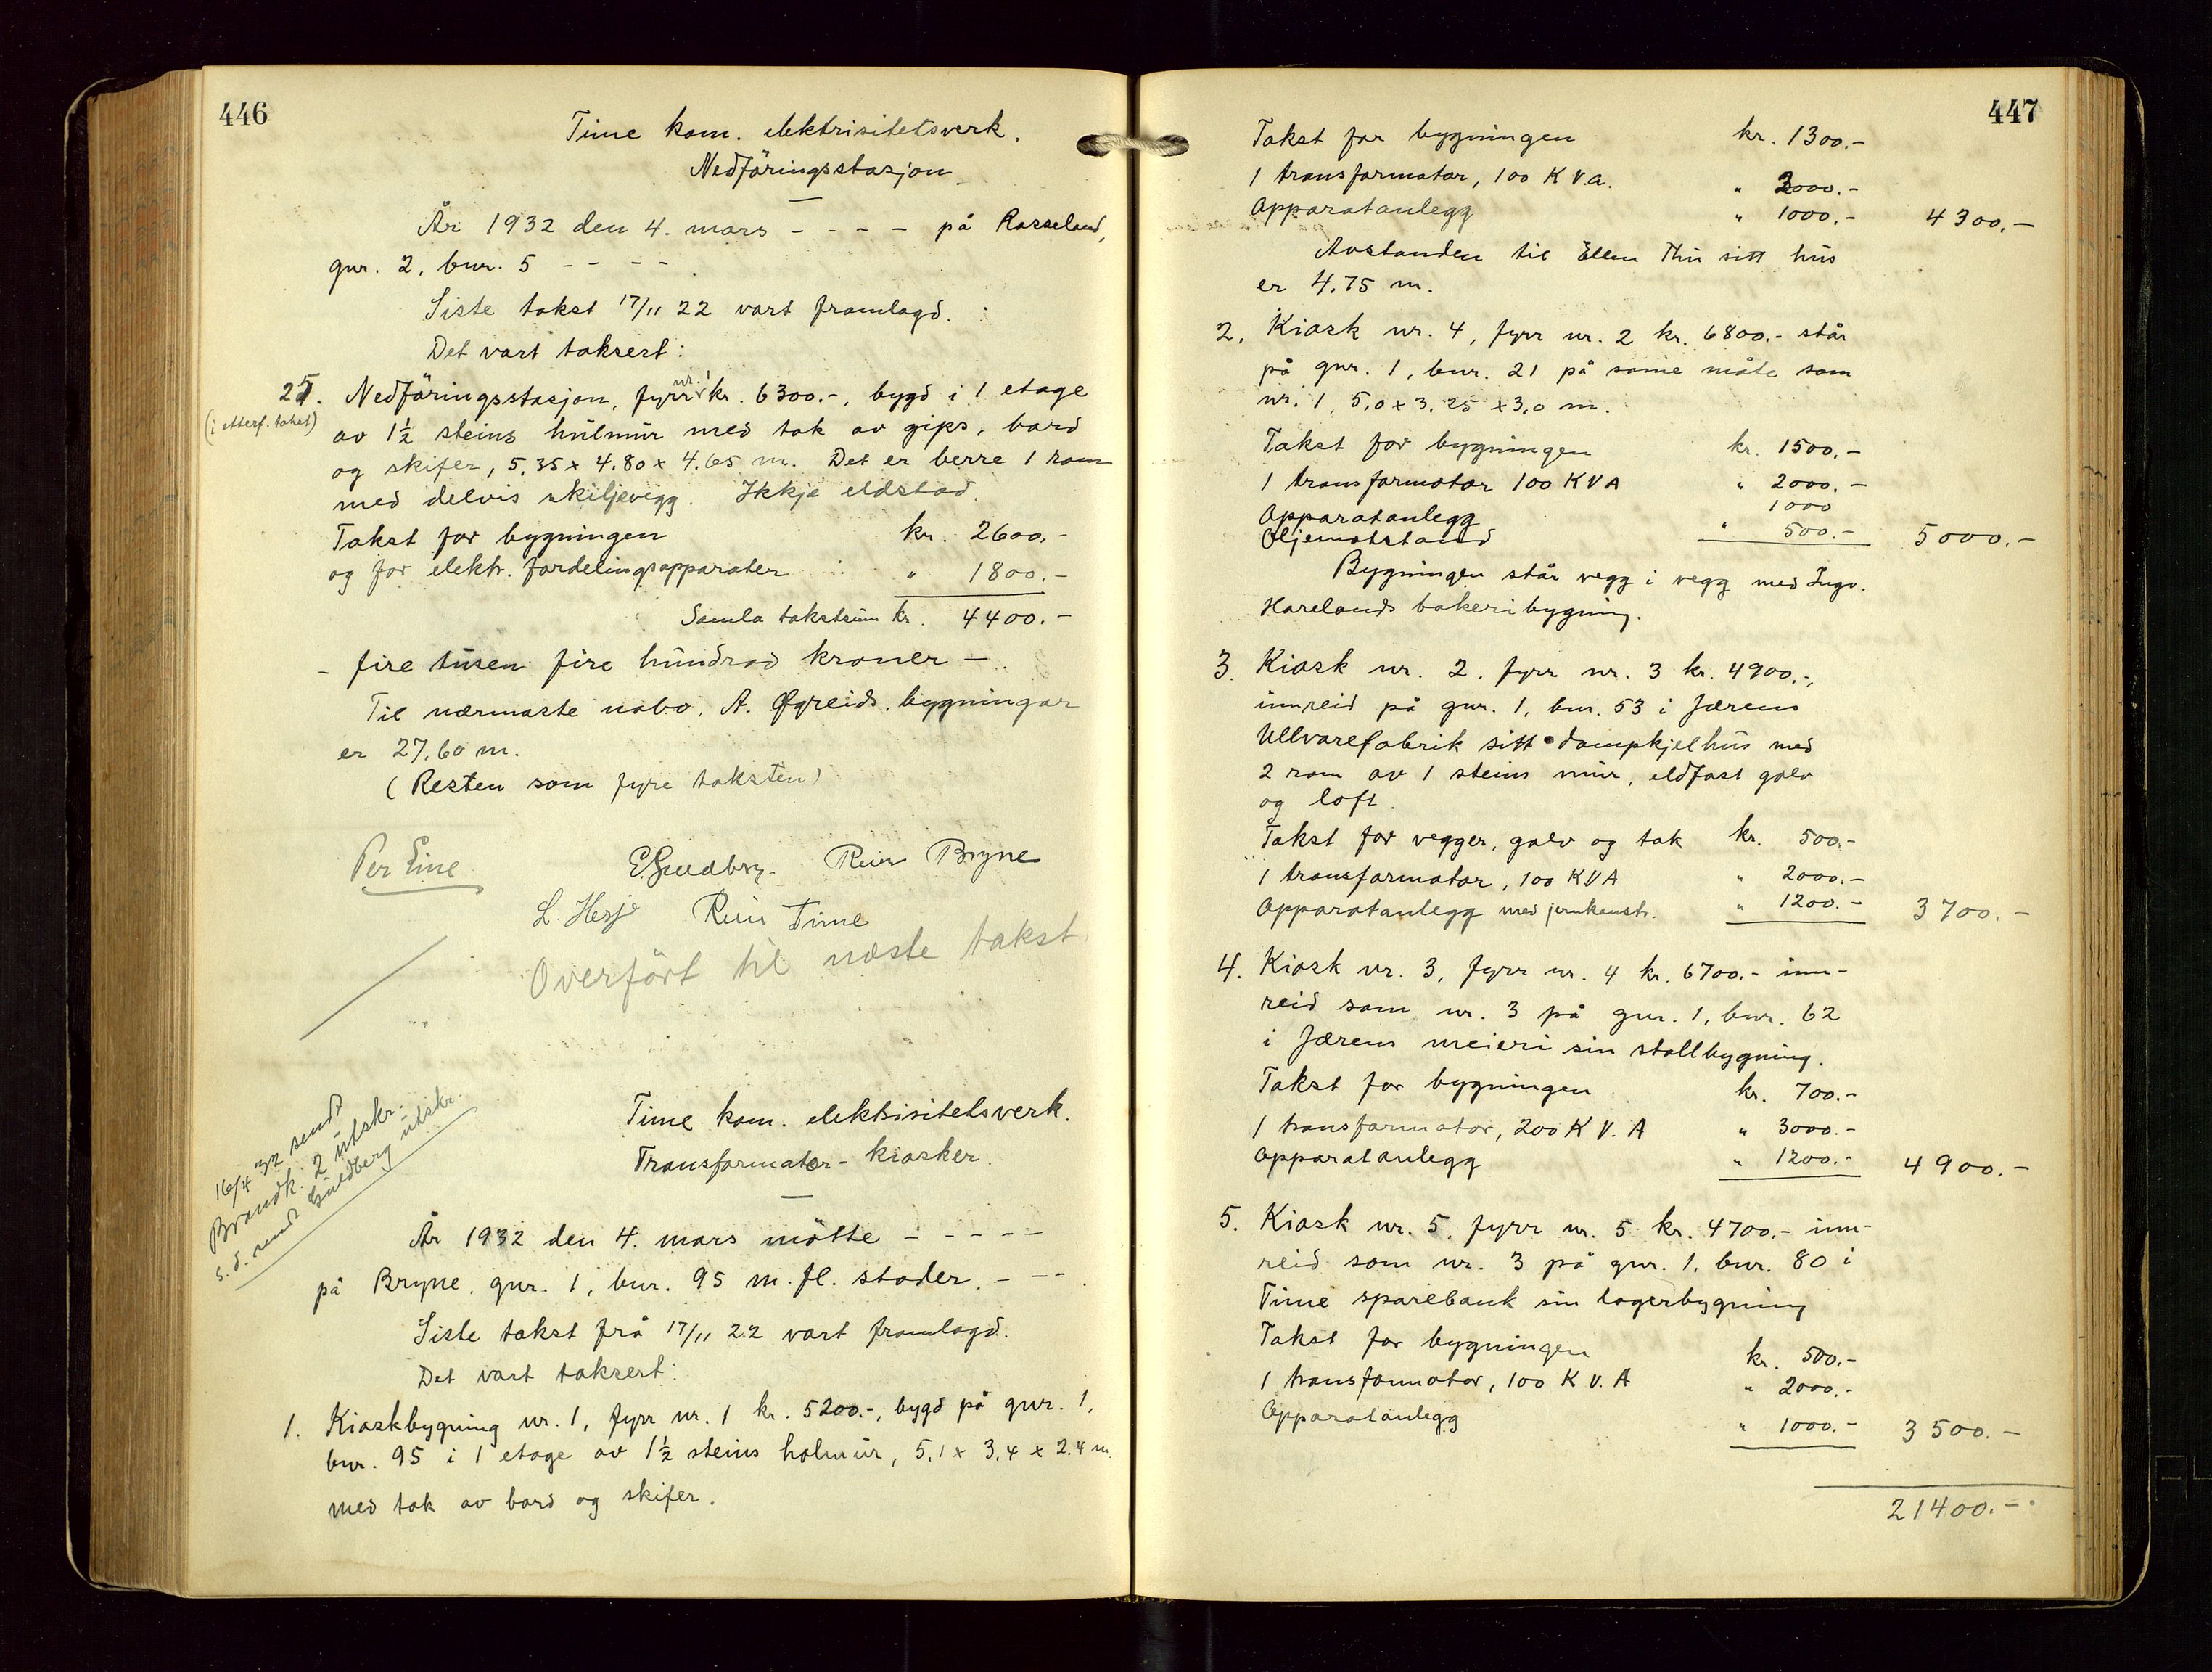 446
Time kom. elektrisitetsverk.
Nedföringsstasjon.
År 1932 den 4. mars - - - - på Rosseland,
gnr. 2, bnr. 5 - - - -
Siste takst 17/11 22 vart framlagd.
Det vart taksert:
25. Nedföringsstasjon, fyrr nr. 1 kr. 6300.-, bygd i 1 etage
(i etterf. takst)
av 1½ steins hulmur med tak av gips, bord
og skifer, 5,35 x 4,80 x 4,65 m. Det er berre 1 rom
med delvis skiljevegg. Ikkje eldstad.
Takst for bygningen kr. 2600.-
og for elektr. fordelingsapparater " 1800.-
Samla takstsum kr. 4400.-
- fire tusen fire hundrad kroner -.
Til nærmaste nabo, A. Øgreids bygningar
er 27,60 m.
(Resten som fyre taksten)
Per Line E. Guldbrg. Rein Bryne
L. Herje Rein Time
Overfört til næste takst
16/4 32 sendt
Brandk. 2 utskr.
s. d. sendt Guldberg utskr.
Time kom. elektrisitetsverk.
Transformator-kiosker.
År 1932 den 4. mars mötte - - - - -
på Bryne, gnr. 1, bnr. 95 m. fl. stader. - - -
Siste takst frå 17/11 22 vart framlagd.
Det vart taksert:
1. Kioskbygning nr. 1, fyrr nr. 1 kr. 5200.-, bygd på gnr. 1,
bnr. 95 i 1 etage av 1½ steins holmur, 5,1 x 3,4 x 2,4 m.
med tak av bord og skifer.
447
Takst for bygningen kr. 1300.-
1 transformator, 100 K V.a. " 2000.-
Apparatanlegg " 1000.- 4300.-
Avstanden til Ellen Thu sitt hus
er 4,75 m.
2. Kiosk nr. 4, fyrr nr. 2 kr. 6800.- står
på gnr. 1, bnr. 21 på same måte som
nr. 1, 5,0 x 3,25 x 3,0 m.
Takst for bygningen kr. 1500.-
1 transformator 100 K V A " 2000.-
Apparatanlegg 1000
Oljemotstand " 500.- 5000.-
Bygningen står vegg i vegg med Ingv.
Harelands bakeribygning.
3. Kiosk nr. 2. fyrr nr. 3 kr. 4900.-,
innreid på gnr. 1, bnr. 53 i Jærens
Ullvarefabrik sitt dampkjelhus med
2 rom av 1 steins mur, eldfast golv
og loft.
Takst for vegger, golv og tak kr. 500.-
1 transformator, 100 K V A " 2000.-
Apparatanlegg med jernkonstr. " 1200.- 3700.-
4. Kiosk nr. 3, fyrr nr. 4 kr. 6700.- inn-
reid som nr. 3 på gnr. 1, bnr. 62
i Jærens meieri sin stallbygning.
Takst for bygningen kr. 700.-
1 transformator, 200 K V. A " 3000.-
Apparatanlegg " 1200.- 4900.-
5. Kiosk nr. 5, fyrr nr. 5 kr. 4700.- inn-
reid som nr. 3 på gnr. 1, bnr. 80 i
Time sparebank sin lagerbygning
Takst for bygningen kr. 500.-
1 transformator, 100 K V. A " 2000.-
Apparatanlegg " 1000.- 3500.-
21400.-